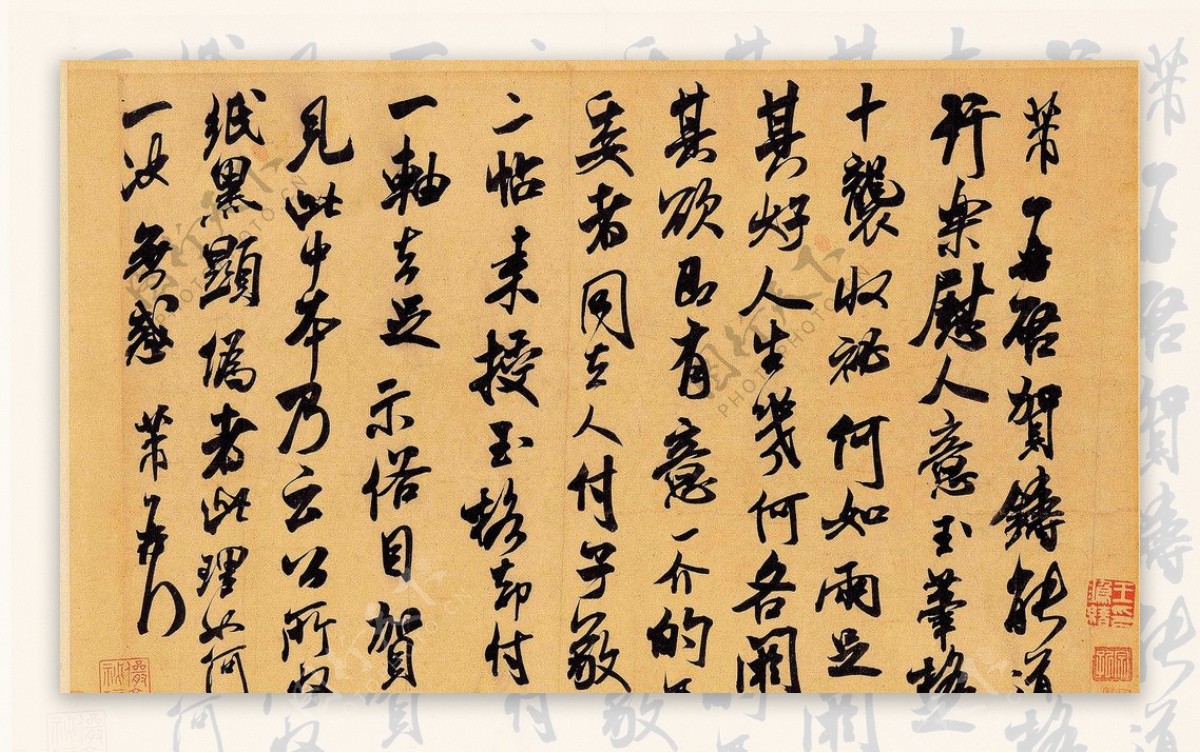 芾再啓賀鑄能道
行樂慰人意玉筆格
十襲收秘何如兩足
其好人生幾何各閣
其欲即有意一介的
委者同去人付子敬
二帖來授玉格却付
一軸去足示俗目賀
見此中本乃云公所收
紙黑顯偽者此理如何
一決無惑芾頓首